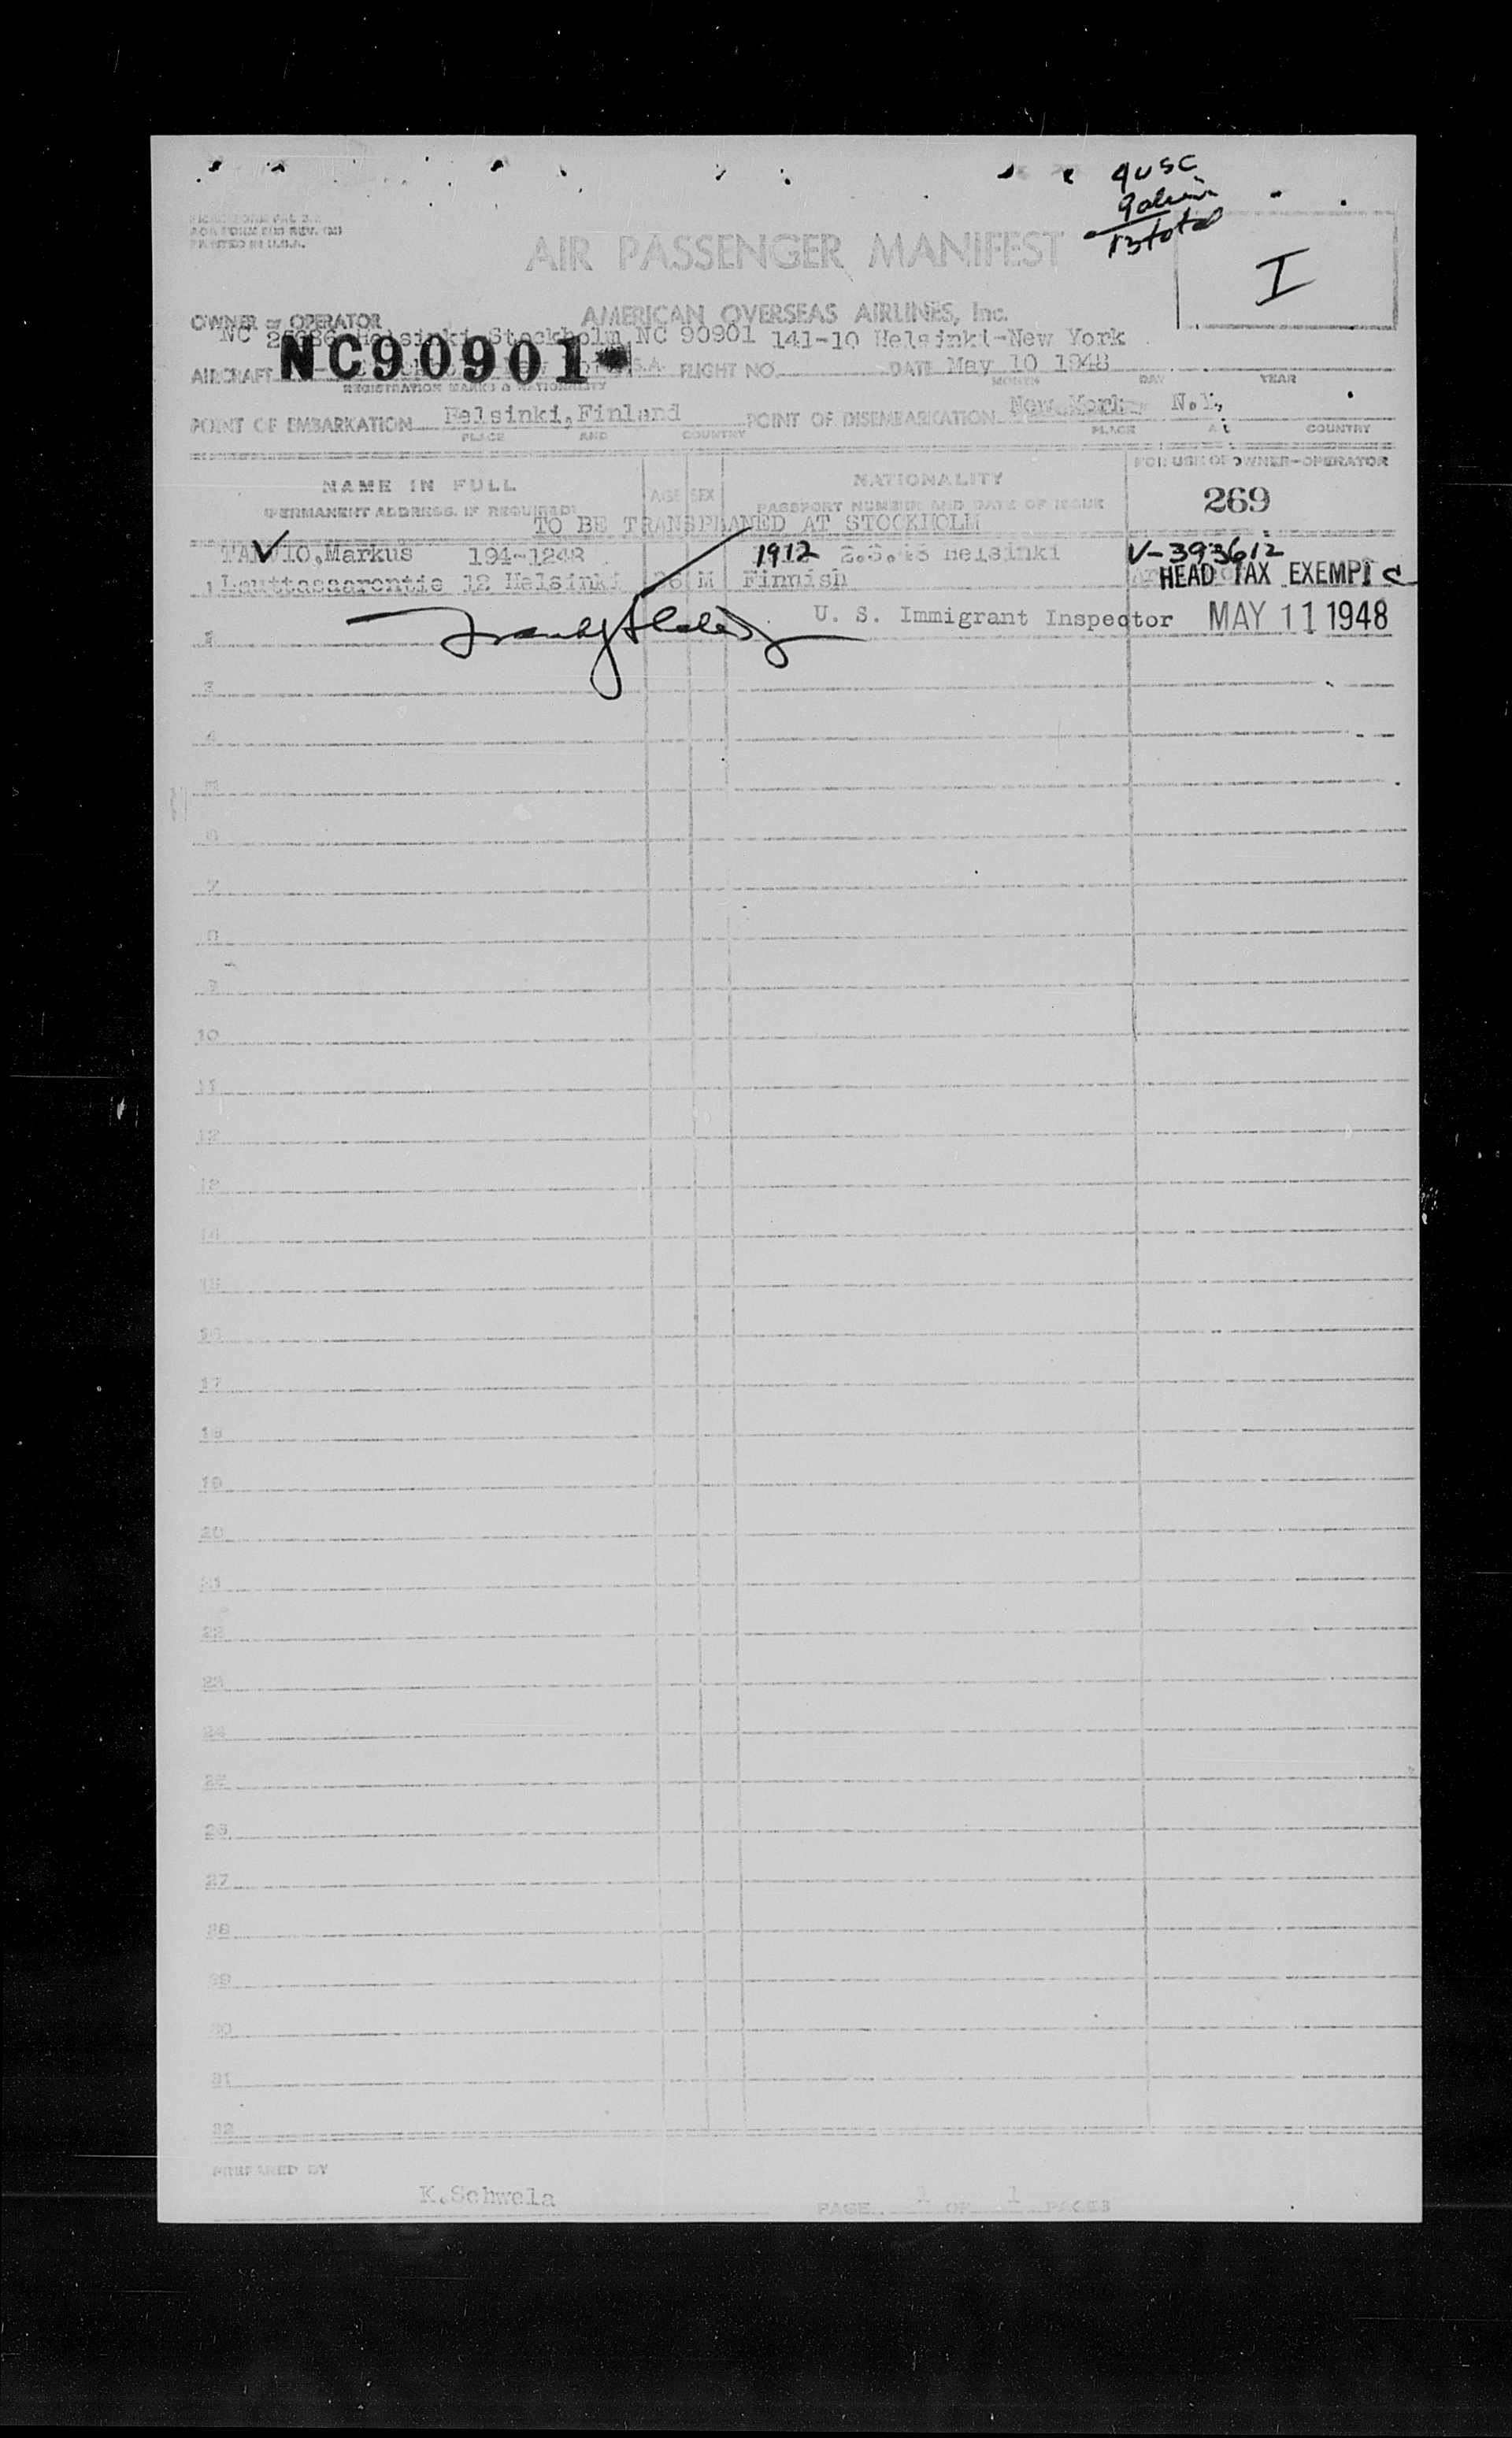 4 USC
9 alien
13 total
PRINTED IN U.S.A.
AIR PASSENGER MANIFEST
I
OWNER or OPERATOR
AMERICAN OVERSEAS AIRLINES, Inc.
NC Helsinki-Stockholm, NC 90901 141-10 Helsinki-New York
NC90901
AIRCRAFT FLIGHT NO. DATE May 10 1948
REGISTRATION MARKS & NATIONALITY MONTH DAY YEAR
POINT OF EMBARKATION Helsinki, Finland POINT OF DISEMBARKATION New York N.Y.
PLACE AND COUNTRY PLACE COUNTRY
NAME IN FULL AGE SEX NATIONALITY FOR USE OF OWNER-OPERATOR
(PERMANENT ADDRESS, IF REQUIRED) PASSPORT NUMBER AND DATE OF ISSUE 269
TO BE TRANSPLANED AT STOCKHOLM
Markus 194-1248 1912 Helsinki V-393612
1 Lauttasaarentie 12 Helsinki 36 M Finnish HEAD TAX EXEMPT C
2 U. S. Immigrant Inspector MAY 11 1948
3
4
5
6
7
8
9
10
11
12
13
14
15
16
17
18
19
20
21
22
23
24
25
26
27
28
29
30
31
32
PREPARED BY
K.Schwela PAGE 1 OF 1 PAGES